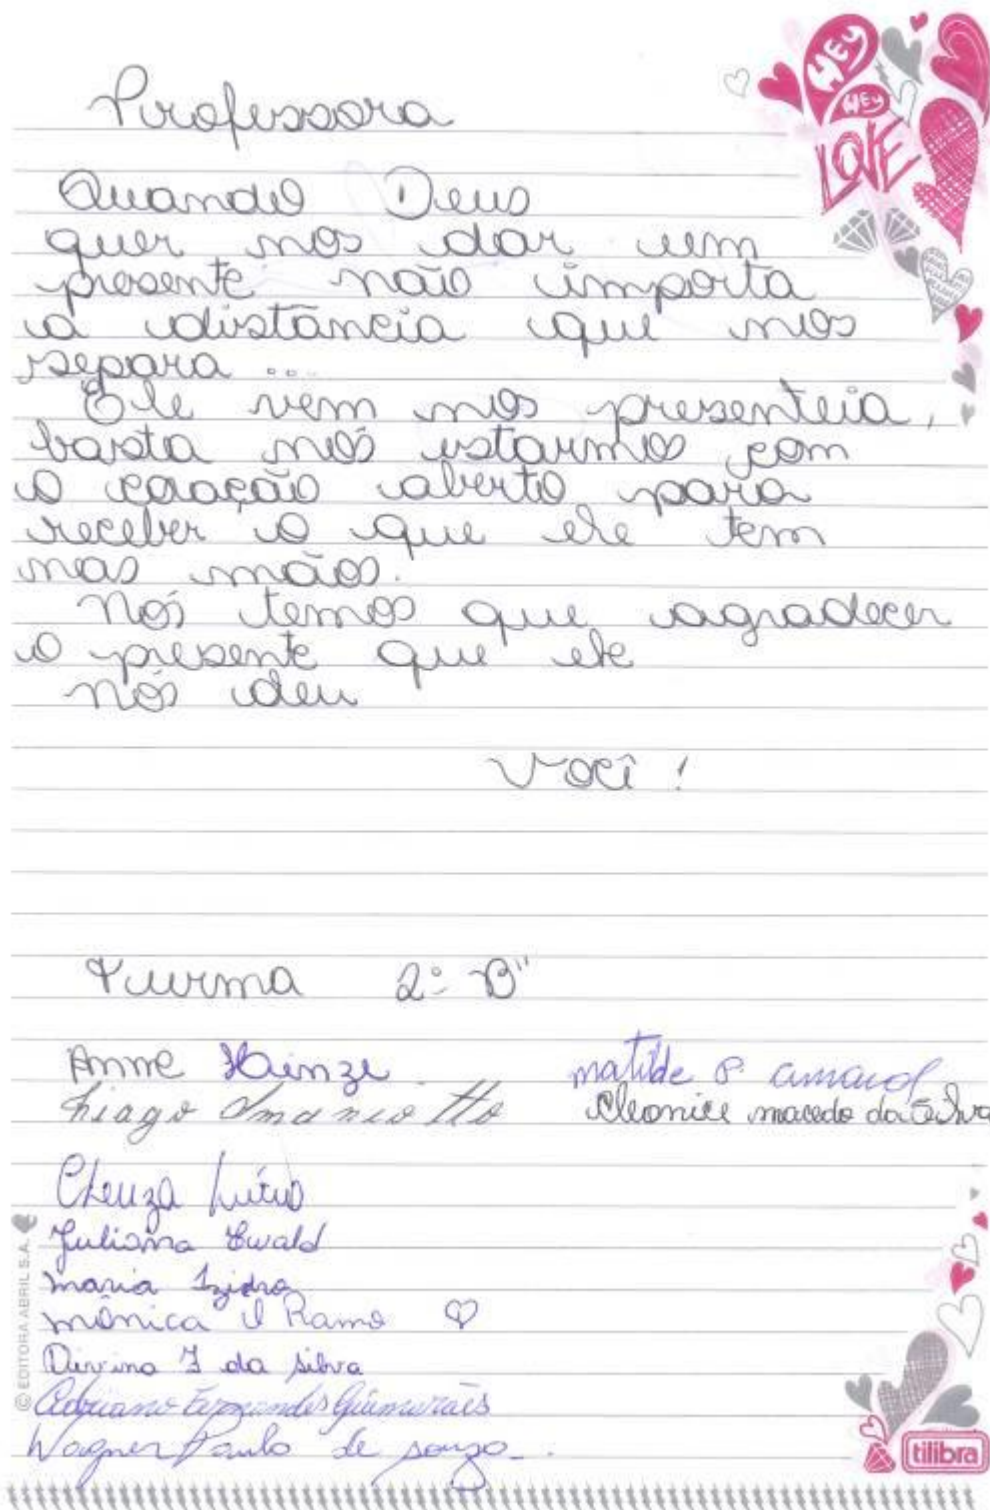 HEY
HEY
LOVE
Professora
Quando Deus
quer nos dar um
presente não importa
a distância que nos
separa ...
Ele vem nos presenteia,
basta nós estarmos com
o coração aberto para
receber o que ele tem
nas mãos.
Nós temos que agradecer
o presente que ele
nós deu
Você !
Turma 2º B"
Anne Hinze
matilde P. amaral
Tiago Smaniotto
Cleonice macedo da Silva
Cleuza Lúcio
Juliana Ewald
maria Izidra
mônica I Ramo
Divina J da silva
Adriano Fernandes Guimarães
Wagner Paulo de souza
© EDITORA ABRIL S.A.
tilibra